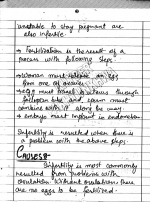 unstable to stay pregnant are
also infertile.
→ Fertilization is the result of a
process with following steps
→ Woman must release an egg
from one of ovaries
→ egg must travel to uterus through
fallopian tube and sperm must
combine with it along the way.
→ embryo must implant in endometrium
Infertility is resulted when there is
a problem with the above steps.
CAUSES:-
Infertility is most commonly
resulted from problems with
ovulation. Without ovulation, there
are no eggs to be fertilized.